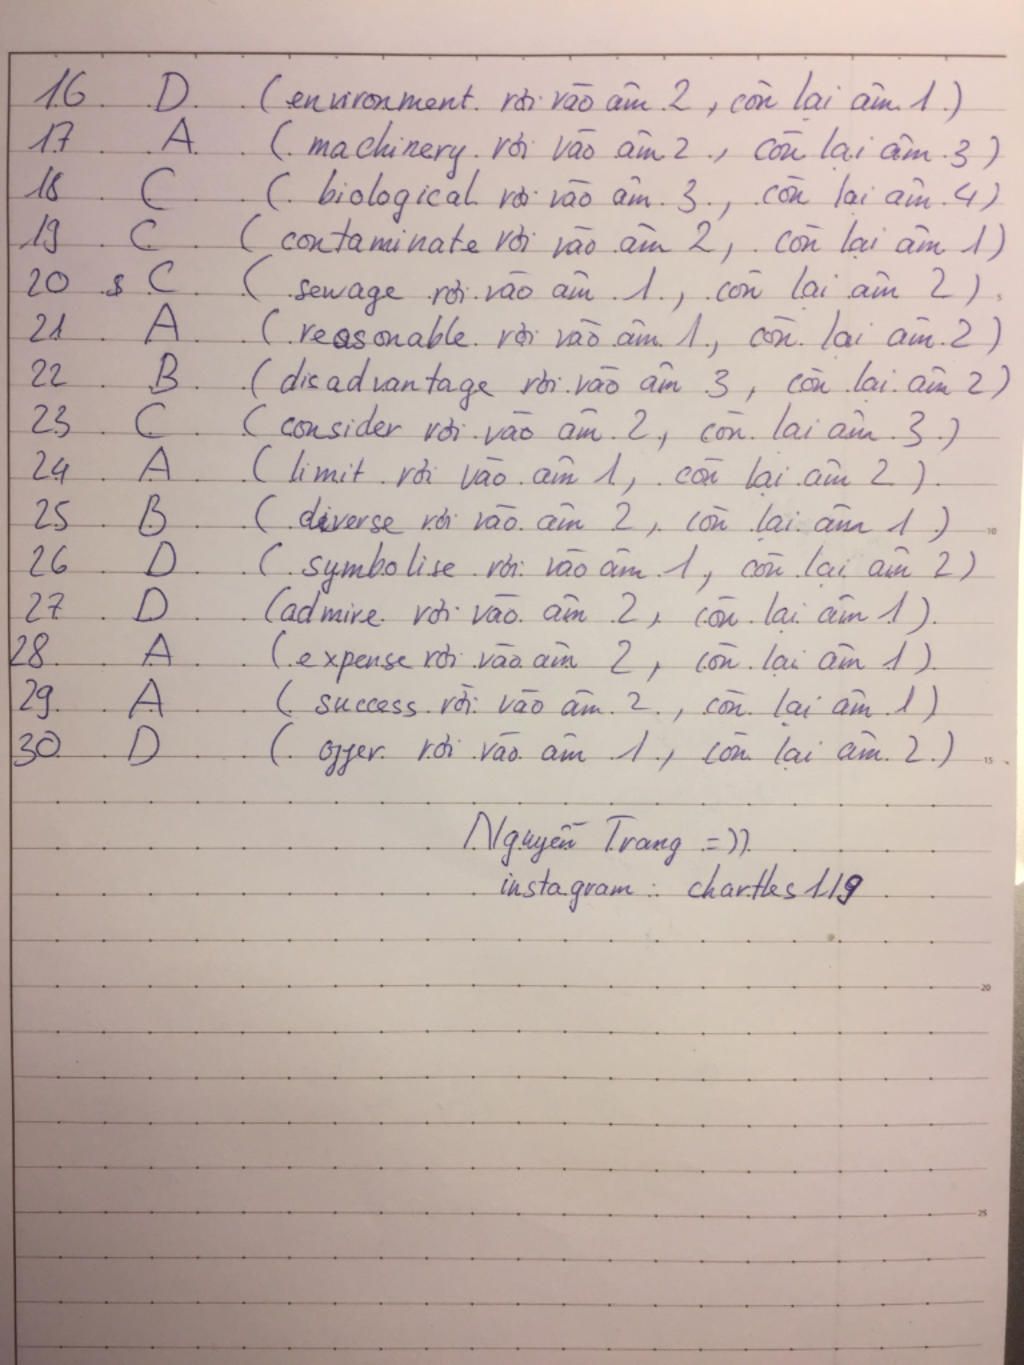 16 D (environment rơi vào âm 2, còn lại âm 1)
17 A (machinery rơi vào âm 2, còn lại âm 3)
18 C (biological rơi vào âm 3, còn lại âm 4)
19 C (contaminate rơi vào âm 2, còn lại âm 1)
20 C (sewage rơi vào âm 1, còn lại âm 2)
21 A (reasonable rơi vào âm 1, còn lại âm 2)
22 B (disadvantage rơi vào âm 3, còn lại âm 2)
23 C (consider rơi vào âm 2, còn lại âm 3)
24 A (limit rơi vào âm 1, còn lại âm 2)
25 B (diverse rơi vào âm 2, còn lại âm 1)
10
26 D (symbolise rơi vào âm 1, còn lại âm 2)
27 D (admire rơi vào âm 2, còn lại âm 1)
28 A (expense rơi vào âm 2, còn lại âm 1)
29 A (success rơi vào âm 2, còn lại âm 1)
30 D (offer rơi vào âm 1, còn lại âm 2)
15
Nguyễn Trang =))
instagram: chartles119
20
25